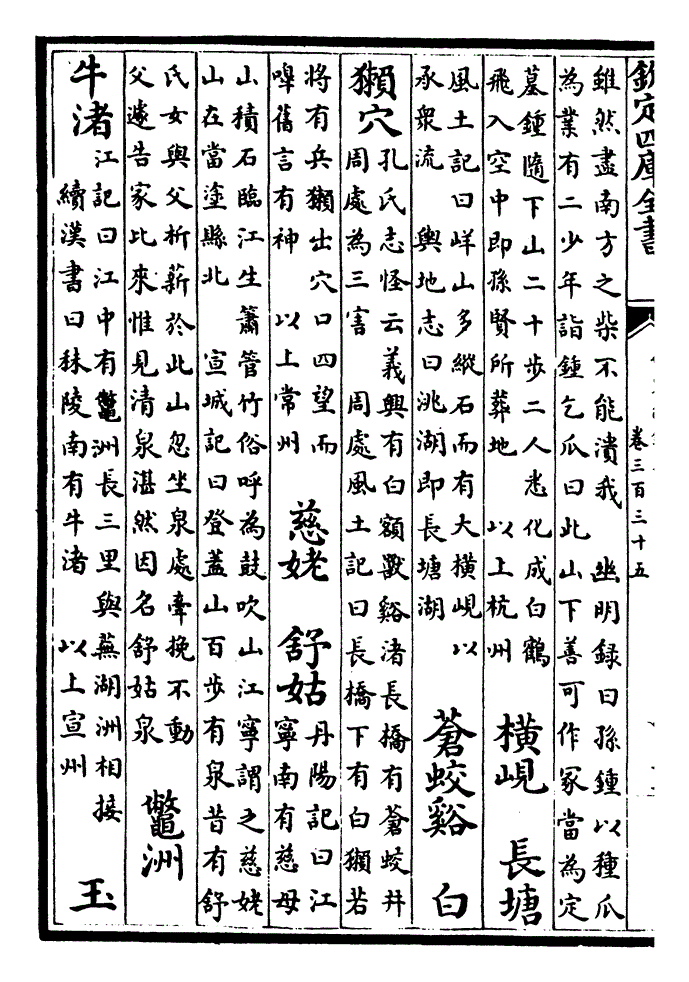 欽定四庫全書
卷三百三十五
雖然盡南方之柴不能潰我　幽明録曰孫鍾以種瓜
為業有二少年詣鍾乞瓜曰此山下善可作冢當為定
墓鍾隨下山二十步二人悉化成白鶴
飛入空中即孫賢所葬地　以上杭州
橫峴　長塘
風土記曰山多縱石而有大橫峴以
承衆流　輿地志曰洮湖即長塘湖
蒼蛟谿　白
獺穴
孔氏志怪云義興有白額獸谿渚長橋有蒼蛟并
周處為三害　周處風土記曰長橋下有白獺若
將有兵獺出穴口四望而
嘷舊言有神　以上常州
慈姥　舒姑
丹陽記曰江
寧南有慈母
山積石臨江生簫管竹俗呼為鼓吹山江寧謂之慈姥
山在當塗縣北　宣城記曰登蓋山百步有泉昔有舒
氏女與父析薪於此山忽坐泉處牽挽不動
父遽告家比來惟見清泉湛然因名舒姑泉
鼈洲
牛渚
江記曰江中有鼈洲長三里與蕪湖洲相接
續漢書曰秣陵南有牛渚　以上宣州
玉